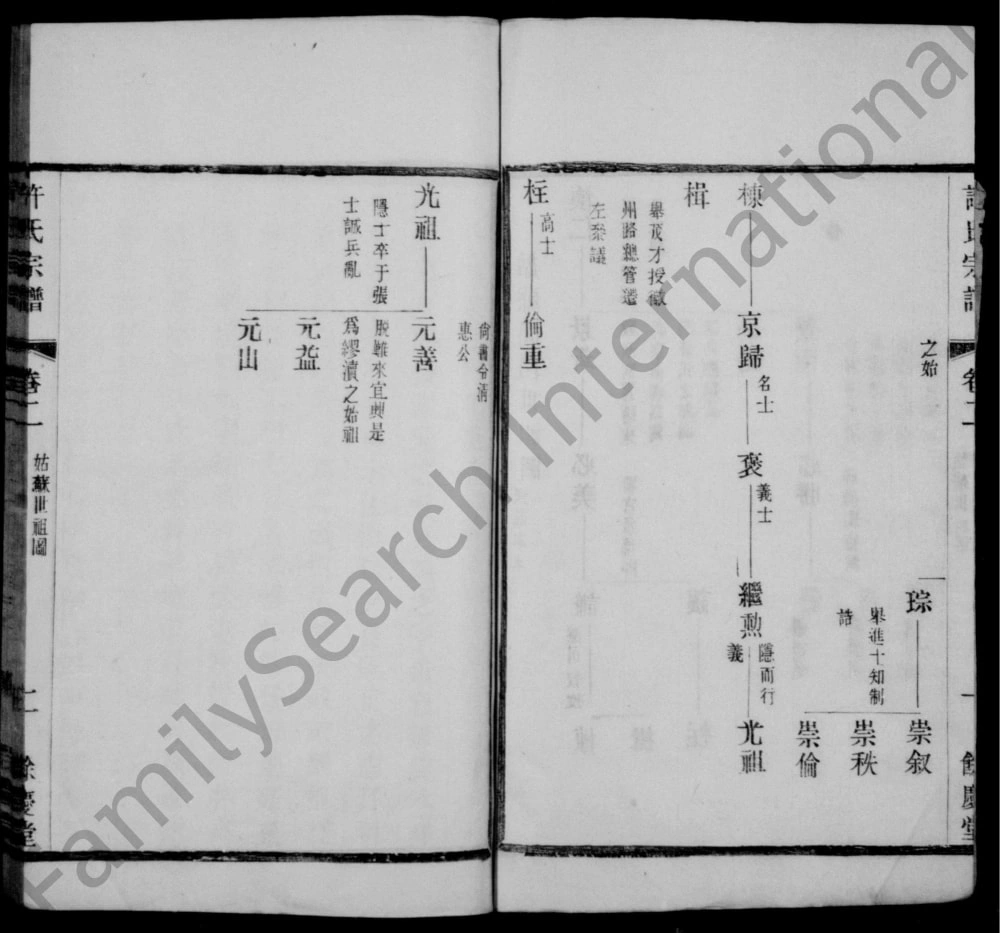 許氏宗譜
卷二
一
餘慶堂
之始
琮
舉進士知制
誥
崇叙
崇秩
崇倫
棟
京歸
名士
褒
義士
繼勲
隱而行
義
光祖
楫
舉茂才授徽
州路總管遷
左叅議
枉
高士
倫重
尚書令謚
惠公
光祖
隱士卒于張
士誠兵亂
元善
脫難來宜興是
爲繆瀆之始祖
元益
元山
許氏宗譜
卷二
姑蘇世祖圖
二
餘慶堂
FamilySearch International